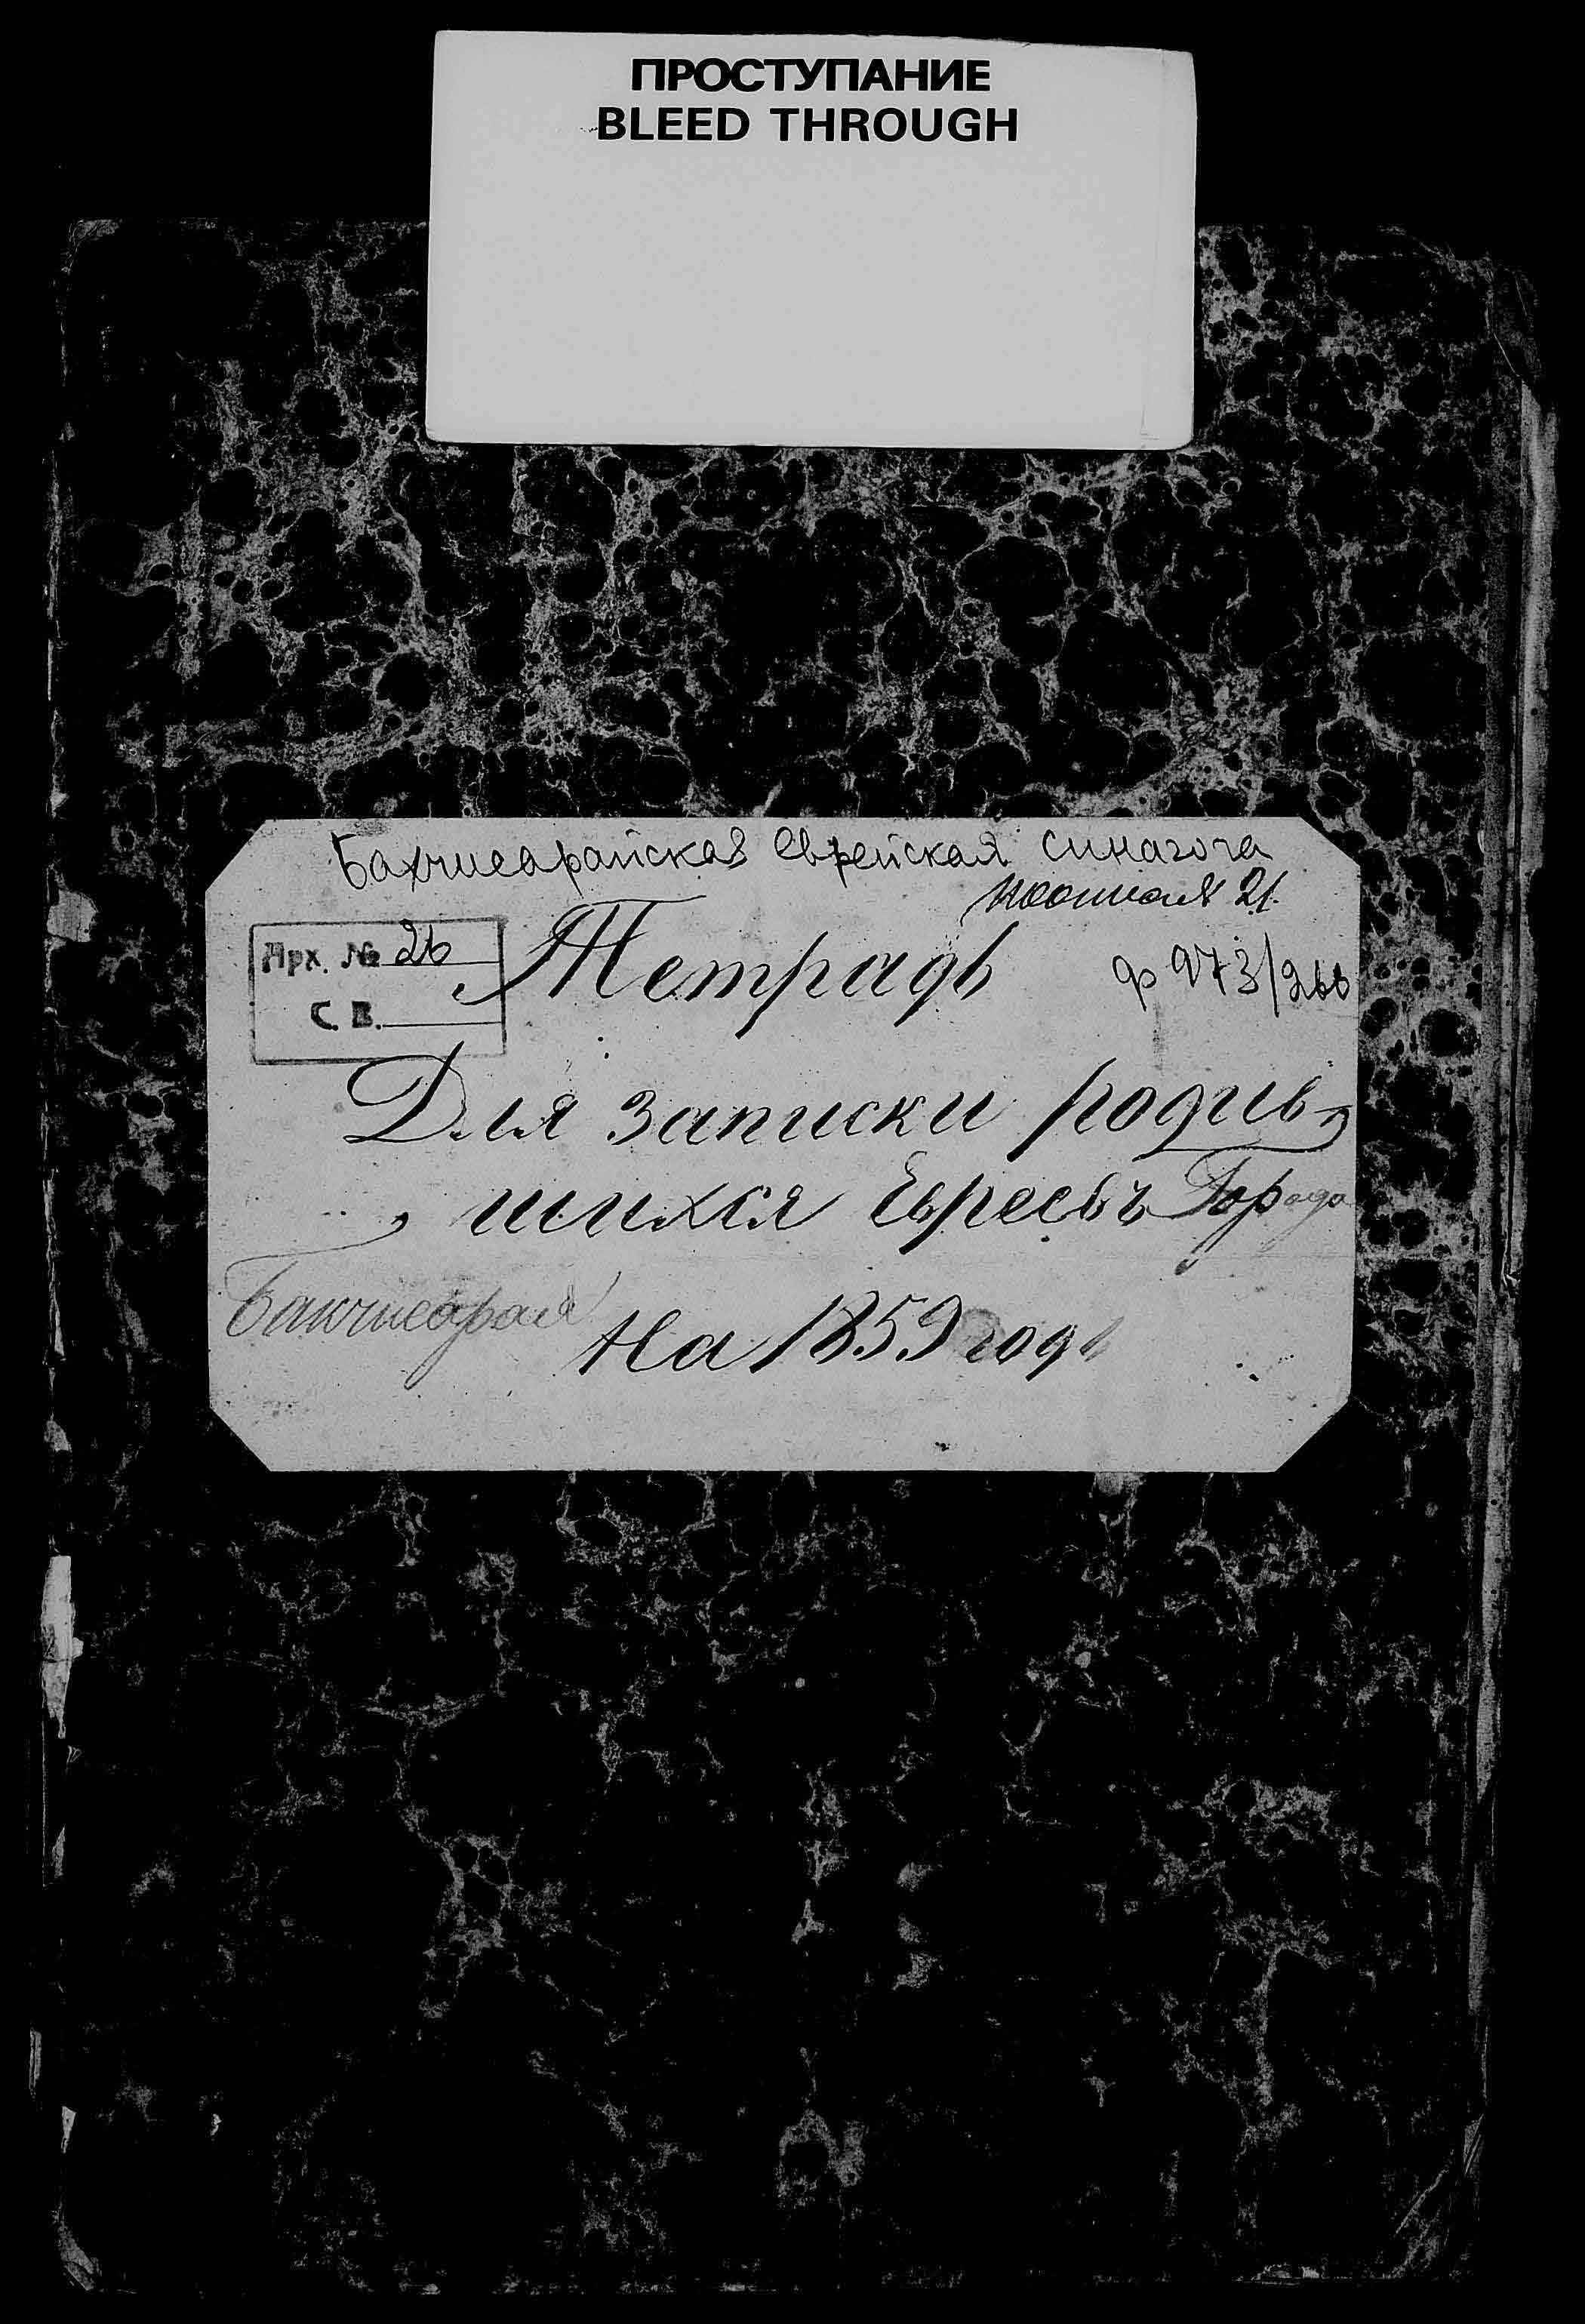 ПРОСТУПАНИЕ
BLEED THROUGH
Бахчисарайская еврейская синагога
21.
Арх. № 26
С. В.
Тетрадь
ф 973/266
Для записки родив-
шихся Евреевъ Города
Бакчисарая
На 1859 годъ